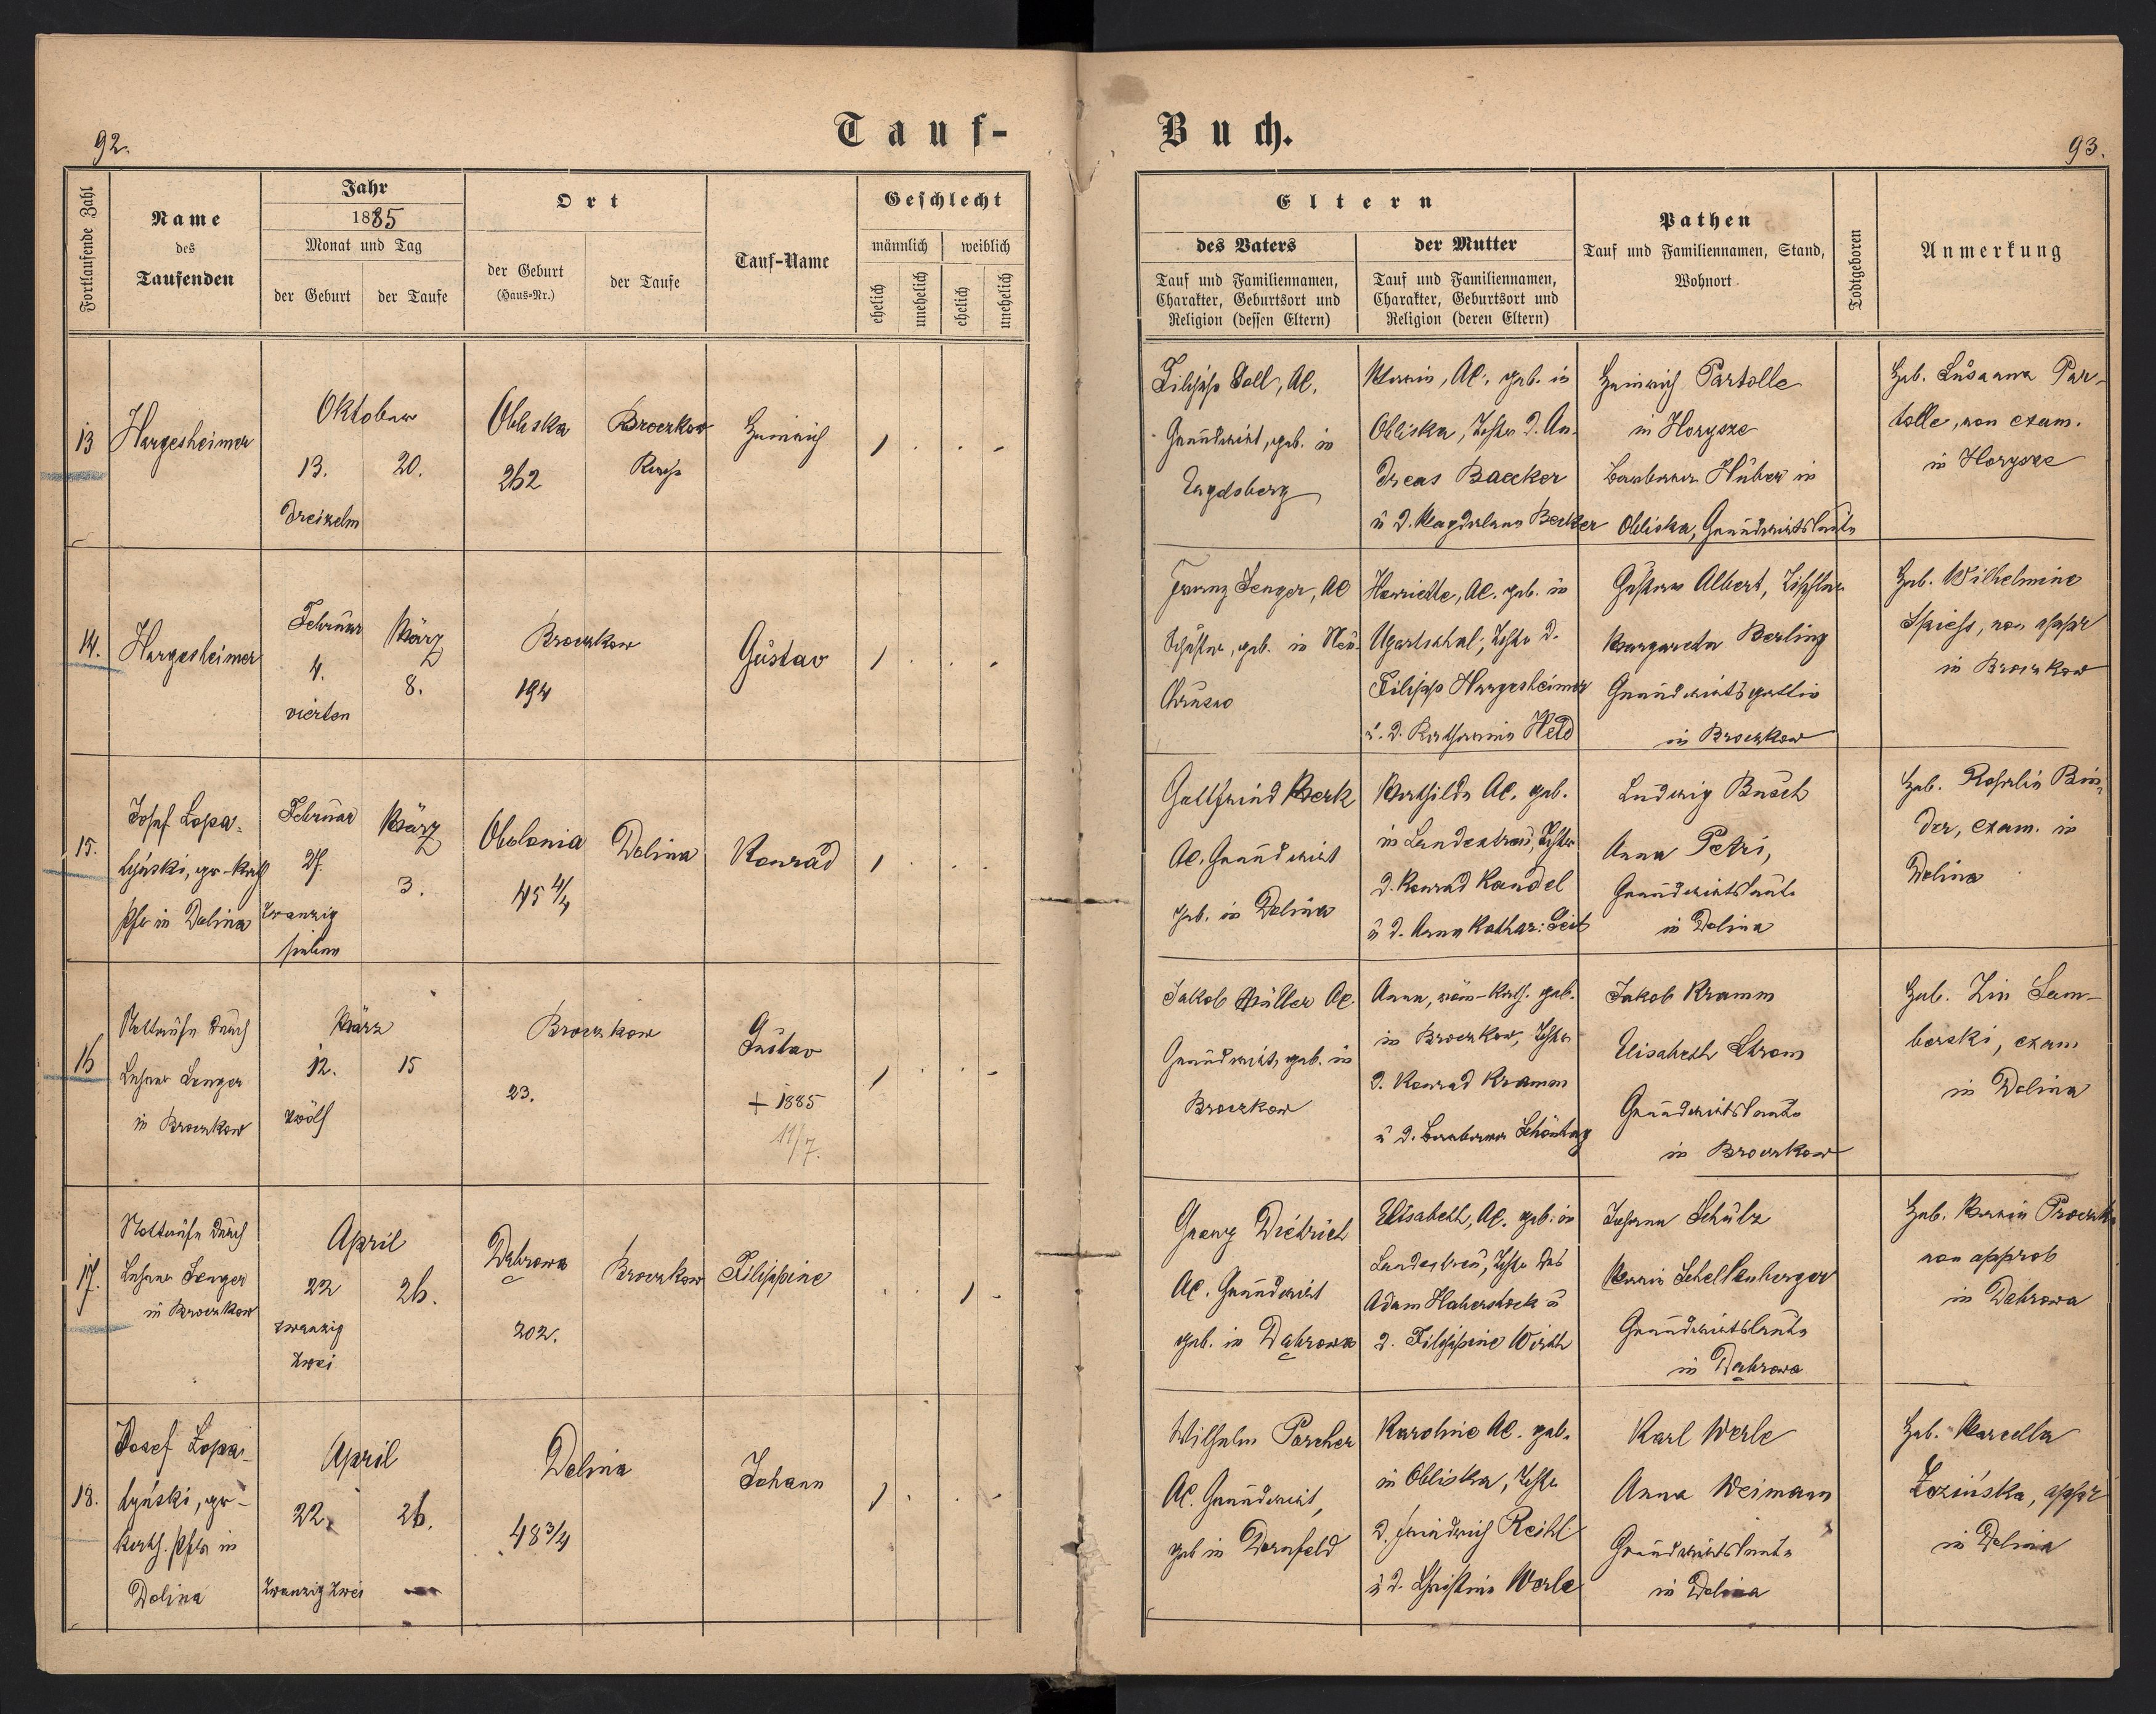 92.
Tauf-
Fortlaufende Zahl
Name
des
Taufenden
Jahr
1885
Monat und Tag
der Geburt
der Taufe
Ort
der Geburt
(Haus-Nr.)
der Taufe
Tauf-Name
Geschlecht
männlich
weiblich
ehelich
unehelich
ehelich
unehelich
13
Hargesheimer
Oktober
13.
20.
dreizehn
Obliska
262
Broczkow
Heinrich
14.
Hargesheimer
Februar
4.
vierten
März
8.
Broczkow
194
Gustav
15.
Josef Lopa-
tyński, gr-kath
Pfr in Dolina
Februar
27.
zwanzig
sieben
März
3.
Obolonia
45 4/4
Dolina
Konrad
16
Nottaufe durch
Lehrer Senger
in Broczkow
März
12.
15
zwölf
Broczkow
23.
Gustav
+ 1885
11/7.
17.
Nottaufe durch
Lehrer Senger
in Broczkow
April
22
26.
zwanzig
zwei
Dąbrowa
202.
Broczkow
Filippine
18.
Josef Lopa-
tyński, gr-
kath. Pfr in
Dolina
April
22.
26.
zwanzig zwei
Dolina
48 3/4
Johann
Buch.
93.
Eltern
des Vaters
Tauf und Familiennamen,
Charakter, Geburtsort und
Religion (dessen Eltern)
der Mutter
Tauf und Familiennamen,
Charakter, Geburtsort und
Religion (deren Eltern)
Pathen
Tauf und Familiennamen, Stand,
Wohnort.
Todtgeboren
Anmerkung
Filipp Doll, AC.
Grundwirt, geb. in
Ugdsberg
Maria, AC, geb. in
Obliska, Tochter d. An-
dreas Baecker
u d. Magdalena Becker
Heinrich Partolle
in Horysze
Barbara Huber in
Obliska, Grundwirtsleute
Heb. Susanna Par-
tolle, non exam.
in Horysze
Franz Senger, AC
Schuster, geb. in Neu-
Chrusno
Henriette, AC. geb. in
Ugartsthal, Tochter d.
Filipp Hargesheimer
u. d. Katharina Held
Gustav Albert, Tischler
Margareta Berling
Grundwirtsgattin
in Broczkow
Heb. Wilhelmine
Spiess, non appr
in Broczkow
Gottfried Merk
AC. Grundwirt
geb. in Dolina
Mathilda AC. geb.
in Landestreu, Tochter
d. Konrad Kandel
u d. Anna Kathar: Seib
Ludwig Busch
Anna Petri,
Grundwirtsleute
in Dolina
Heb. Rosalia Bin-
der, exam. in
Dolina
Jakob Müller AC.
Grundwirt, geb. in
Broczkow
Anna, röm-kath. geb.
in Broczkow, Tochter
d. Konrad Kramm
u d. Barbara Schöntag
Jakob Kramm
Elisabeth Strom
Grundwirtsleute
in Broczkow
Heb. Sam-
borski, exam
in Dolina
Georg Dietrich
AC. Grundwirt
geb. in Dąbrowa
Elisabeth, AC. geb. in
Landestreu, Tochter des
Adam Haberstock u
d. Filippine Wirth
Johann Schulz
Maria Schellenberger
Grundwirtsleute
in Dąbrowa
Heb. Maria
non approb
in Dąbrowa
Wilhelm Porcher
AC. Grundwirt,
geb in Dornfeld
Karoline AC. geb.
in Obliska, Tochter
d. Friedrich Reikl
u d. Christina Werle
Karl Werle
Anna Weimann
Grundwirtsleute
in Dolina
Heb. Marcella
Łozińska, appr
in Dolina